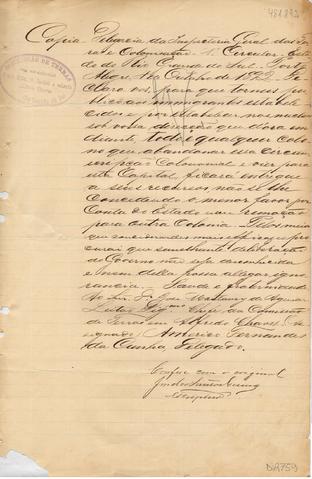 481.893
Copia. Delegacia da Inspectoria Geral das Ter
ras e Colonisação. Circular. Esta
do do Rio Grande do Sul. Porto
Alegre, de Outubro de 189 De
claro vos, para que torneis pu
blico aos immigrantes estabele
cidos e por estabelecer nos nucleos
sob vossa direcção que d'ora em
diante, todo e qualquer colo
no que abandonar a sua circum
scripção Colonial e vier para
esta Capital, ficará entregue
a seus recursos não se lhe
concedendo o menor favor por
conta do Estado nem remoção
para outra Colonia.
que
curai que semelhante deliberação
do Governo não seja desconhecida
e nem della possa allegar igno
rancia. Saude e fraternidade
Ao Snr. Dr. José Montaury de Aguiar
Leitão Chefe da Commissão
de Terras em Alfredo Chaves. As
signado: Americo Fernandes
da Cunha, Delegado.
Confere com o original
Escripturario
DA759